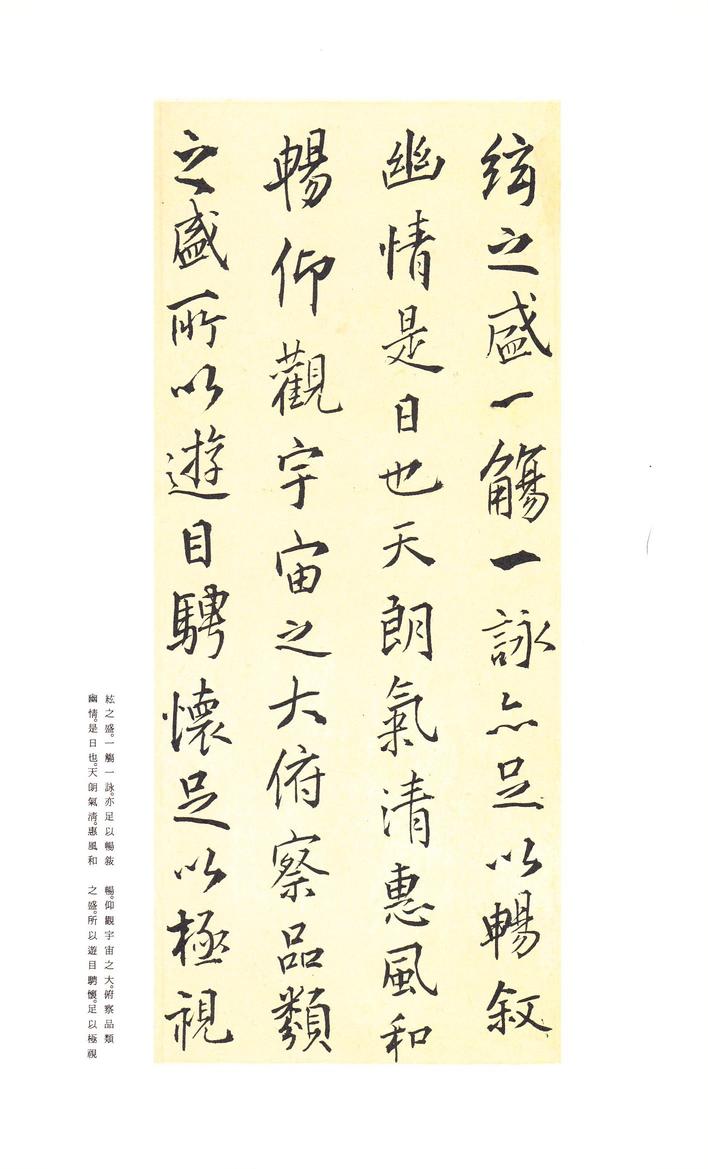 絃之盛一觴一詠亦足以暢叙
幽情是日也天朗氣清惠風和
暢仰觀宇宙之大俯察品類
之盛所以遊目騁懷足以極視
絃之盛。一觴一詠。亦足以暢敍
幽情。是日也。天朗氣清。惠風和
暢。仰觀宇宙之大。俯察品類
之盛。所以遊目騁懷。足以極視